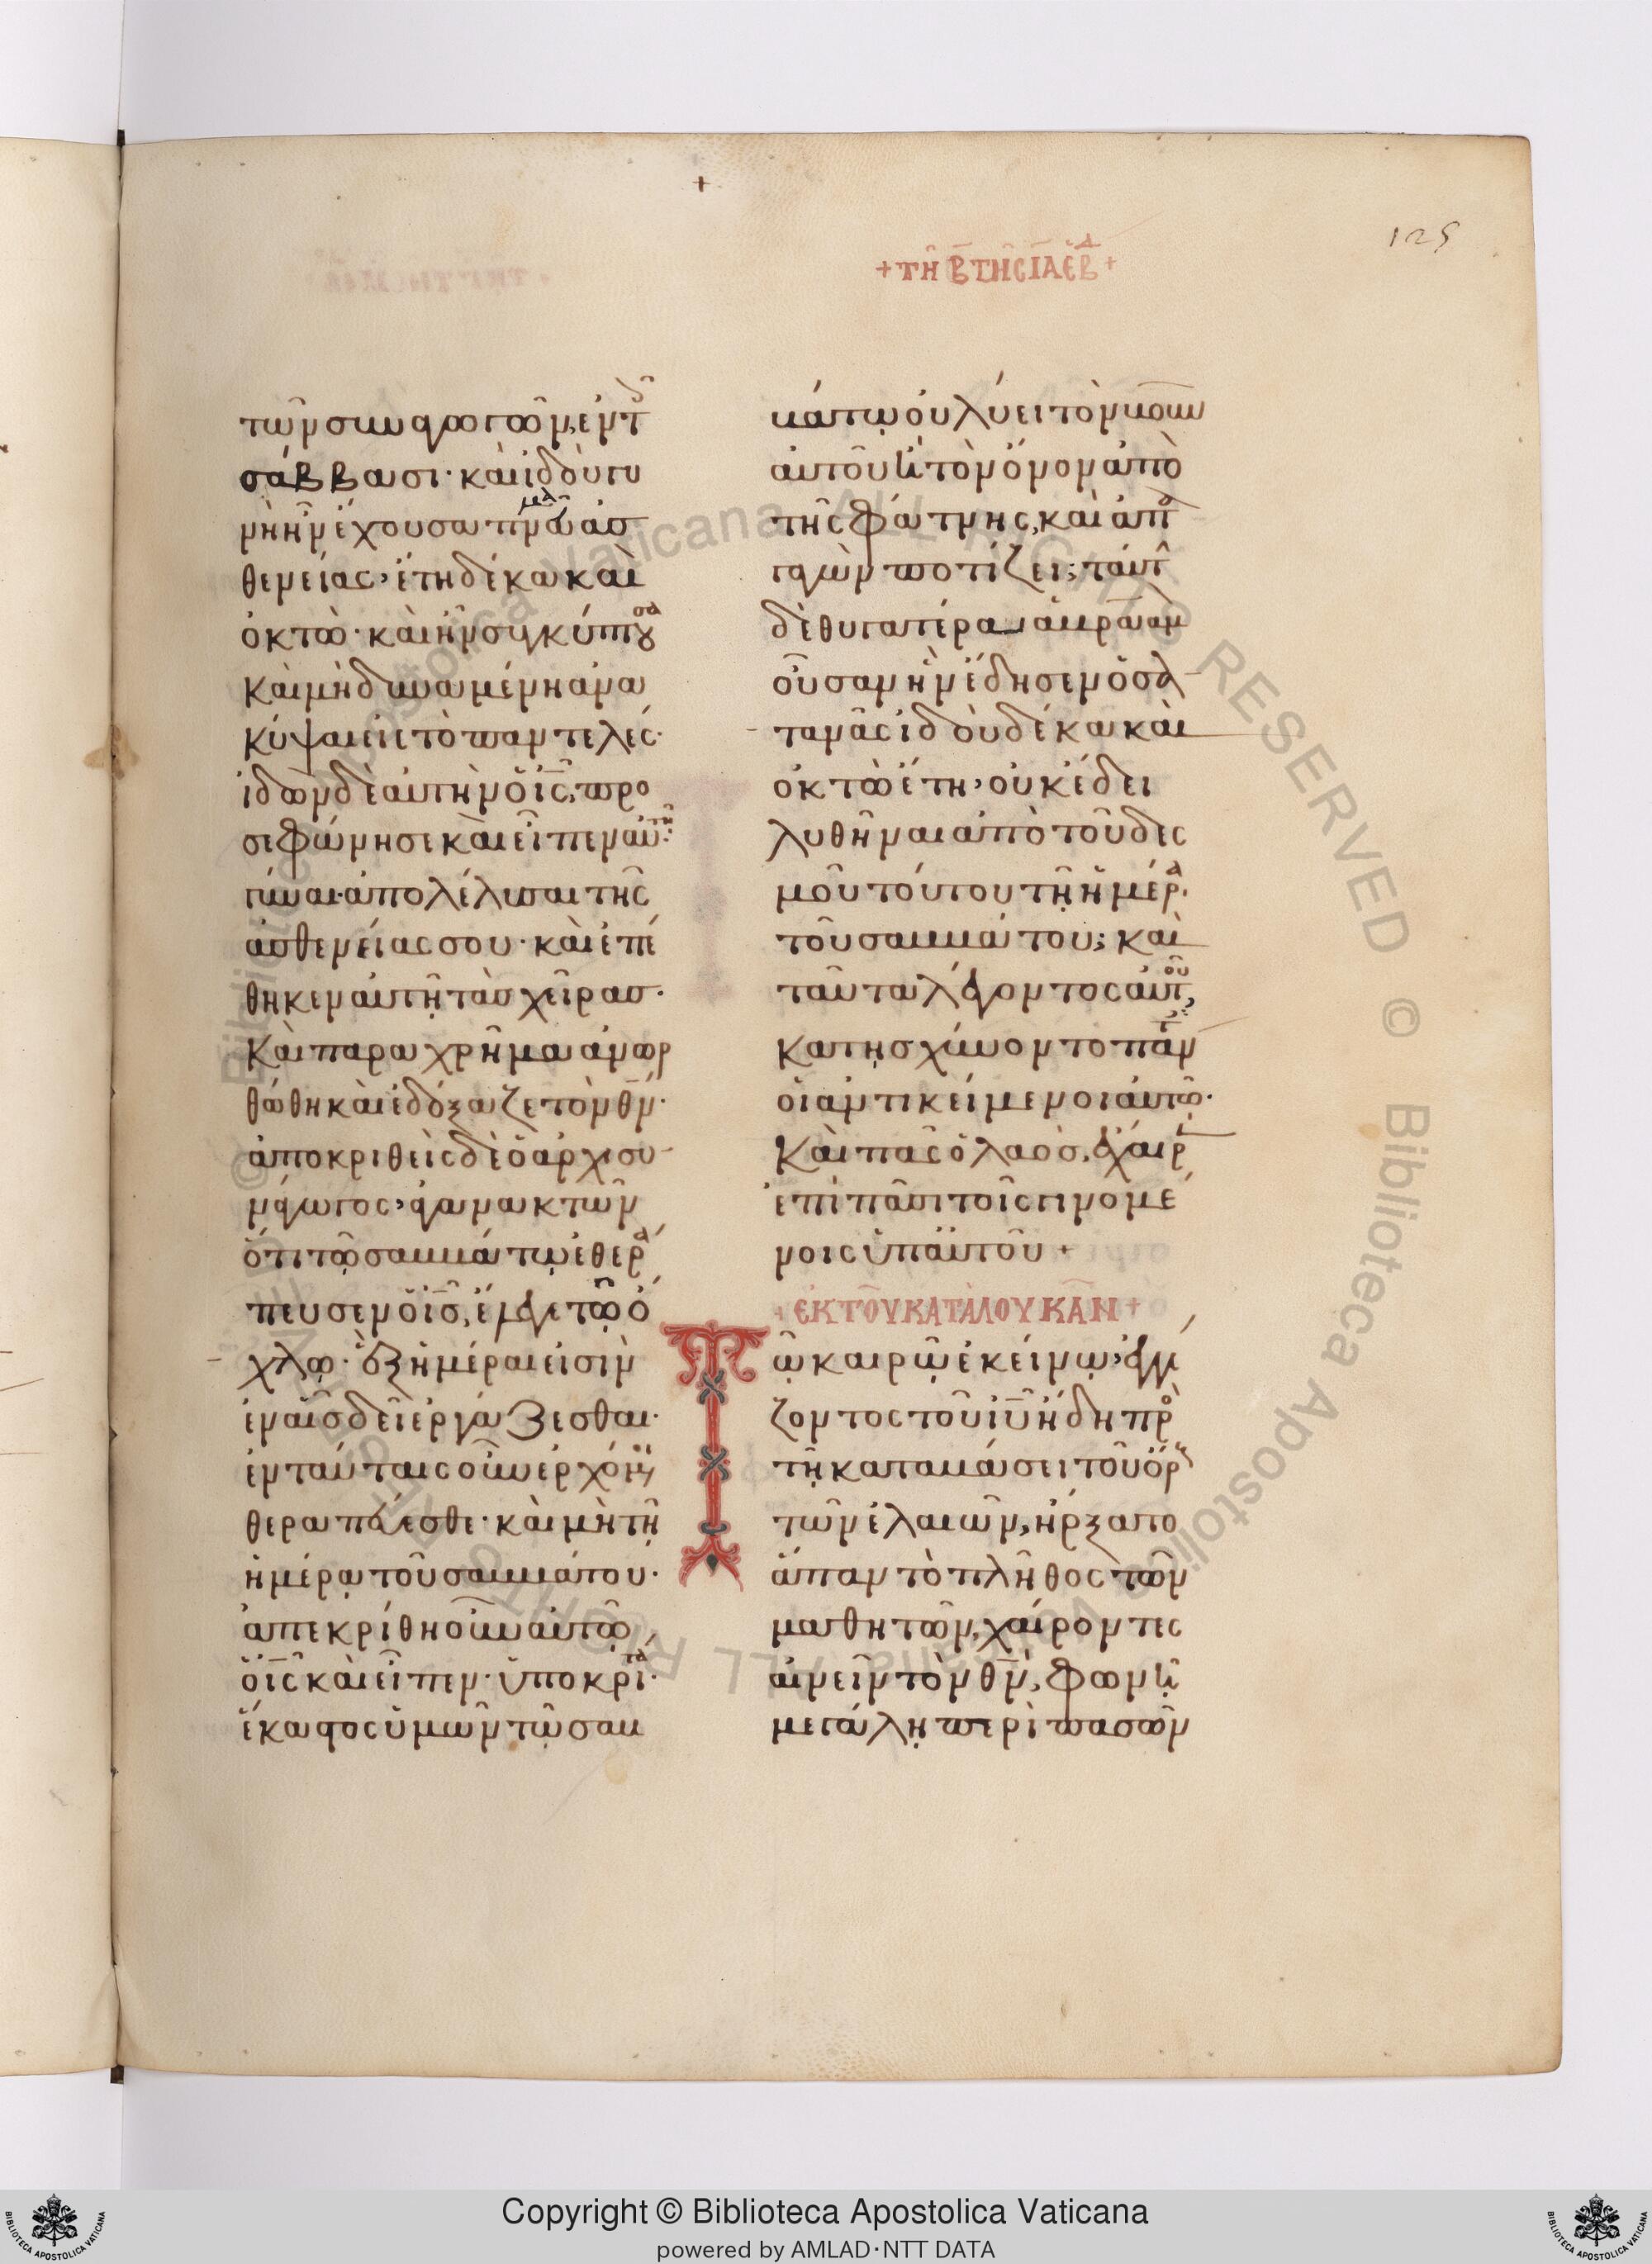 +
125
+ τῆ Β τῆς ΙΑ ἑβδ +
τῶν συναγωγῶν, ἐν τοῖς
σάββασι· καὶ ἰδοὺ γυ
νὴ ἦν ἔχουσα πνᾶ ἀσ
θενείας, ἔτη δέκα καὶ
ὀκτώ· καὶ ἦν συγκύπτουσα
καὶ μὴ δυναμένη ἀνα
κύψαι εἰς τὸ παντελές·
ἰδὼν δὲ αὐτὴν ὁ ις̄, προ
σεφώνησε καὶ εἶπεν αὐτῆ·
γύναι· ἀπολέλυσαι τῆς
ἀσθενείας σου· καὶ ἐπέ
θηκεν αὐτῆ τὰσ χεῖρασ·
καὶ παραχρῆμα ἀνωρ
θώθη καὶ ἐδόξαζε τὸν θν̄·
ἀποκριθεὶς δὲ ὁ ἀρχισυ
νάγωγος, ἀγανακτῶν
ὅτι τῷ σαββάτῳ ἐθερά
πευσεν ὁ ισ̄, ἔλεγε τῷ ὄ
χλῳ· ἓξ ἡμέραι εἰσὶν
ἐν αἷσ δεῖ ἐργάζεσθαι·
ἐν ταύταις οὖν ἐρχόμενοι
θεραπεύεσθε· καὶ μὴ τῆ
ἡμέρᾳ τοῦ σαββάτου·
ἀπεκρίθη οὖν αὐτῷ
ὁ ις̄ καὶ εἶπεν· ὑποκριτά·
ἕκαστος ὑμῶν τῷ σαβ
βάτῳ οὐ λύει τὸν βοῦν
αὐτοῦ ἢ τὸν ὄνον ἀπὸ
τῆς φάτνης, καὶ ἀπα
γαγὼν ποτίζει; ταύτην
δὲ θυγατέρα ἀβραὰμ
οὖσαν ἣν ἔδησεν ὁ σα
τανᾶς ἰδοὺ δέκα καὶ
ὀκτὼ ἔτη, οὐκ ἔδει
λυθῆναι ἀπὸ τοῦ δες
μοῦ τούτου τῆ ἡμέρᾳ
τοῦ σαββάτου; καὶ
ταῦτα λέγοντος αὐτοῦ,
κατῃσχύνοντο πάντες
οἱ ἀντικείμενοι αὐτῷ·
καὶ πᾶς ὁ λαὸσ, ἔχαιρεν
ἐπὶ πᾶσι τοῖς γινομέ
νοις ὑπ' αὐτοῦ +
ἐκ τοῦ κατὰ λουκᾶν +
Τῷ καιρῷ ἐκείνῳ, ἐγγί
ζοντος τοῦ ιῡ ἤδη πρὸς
τῇ καταβάσει τοῦ ὄρους
τῶν ἐλαιῶν, ἤρξατο
ἅπαν τὸ πλῆθος τῶν
μαθητῶν, χαίροντες
αἰνεῖν τὸν θν̄, φωνῇ
μεγάλῃ περὶ πασῶν
Copyright © Biblioteca Apostolica Vaticana
powered by AMLAD·NTT DATA